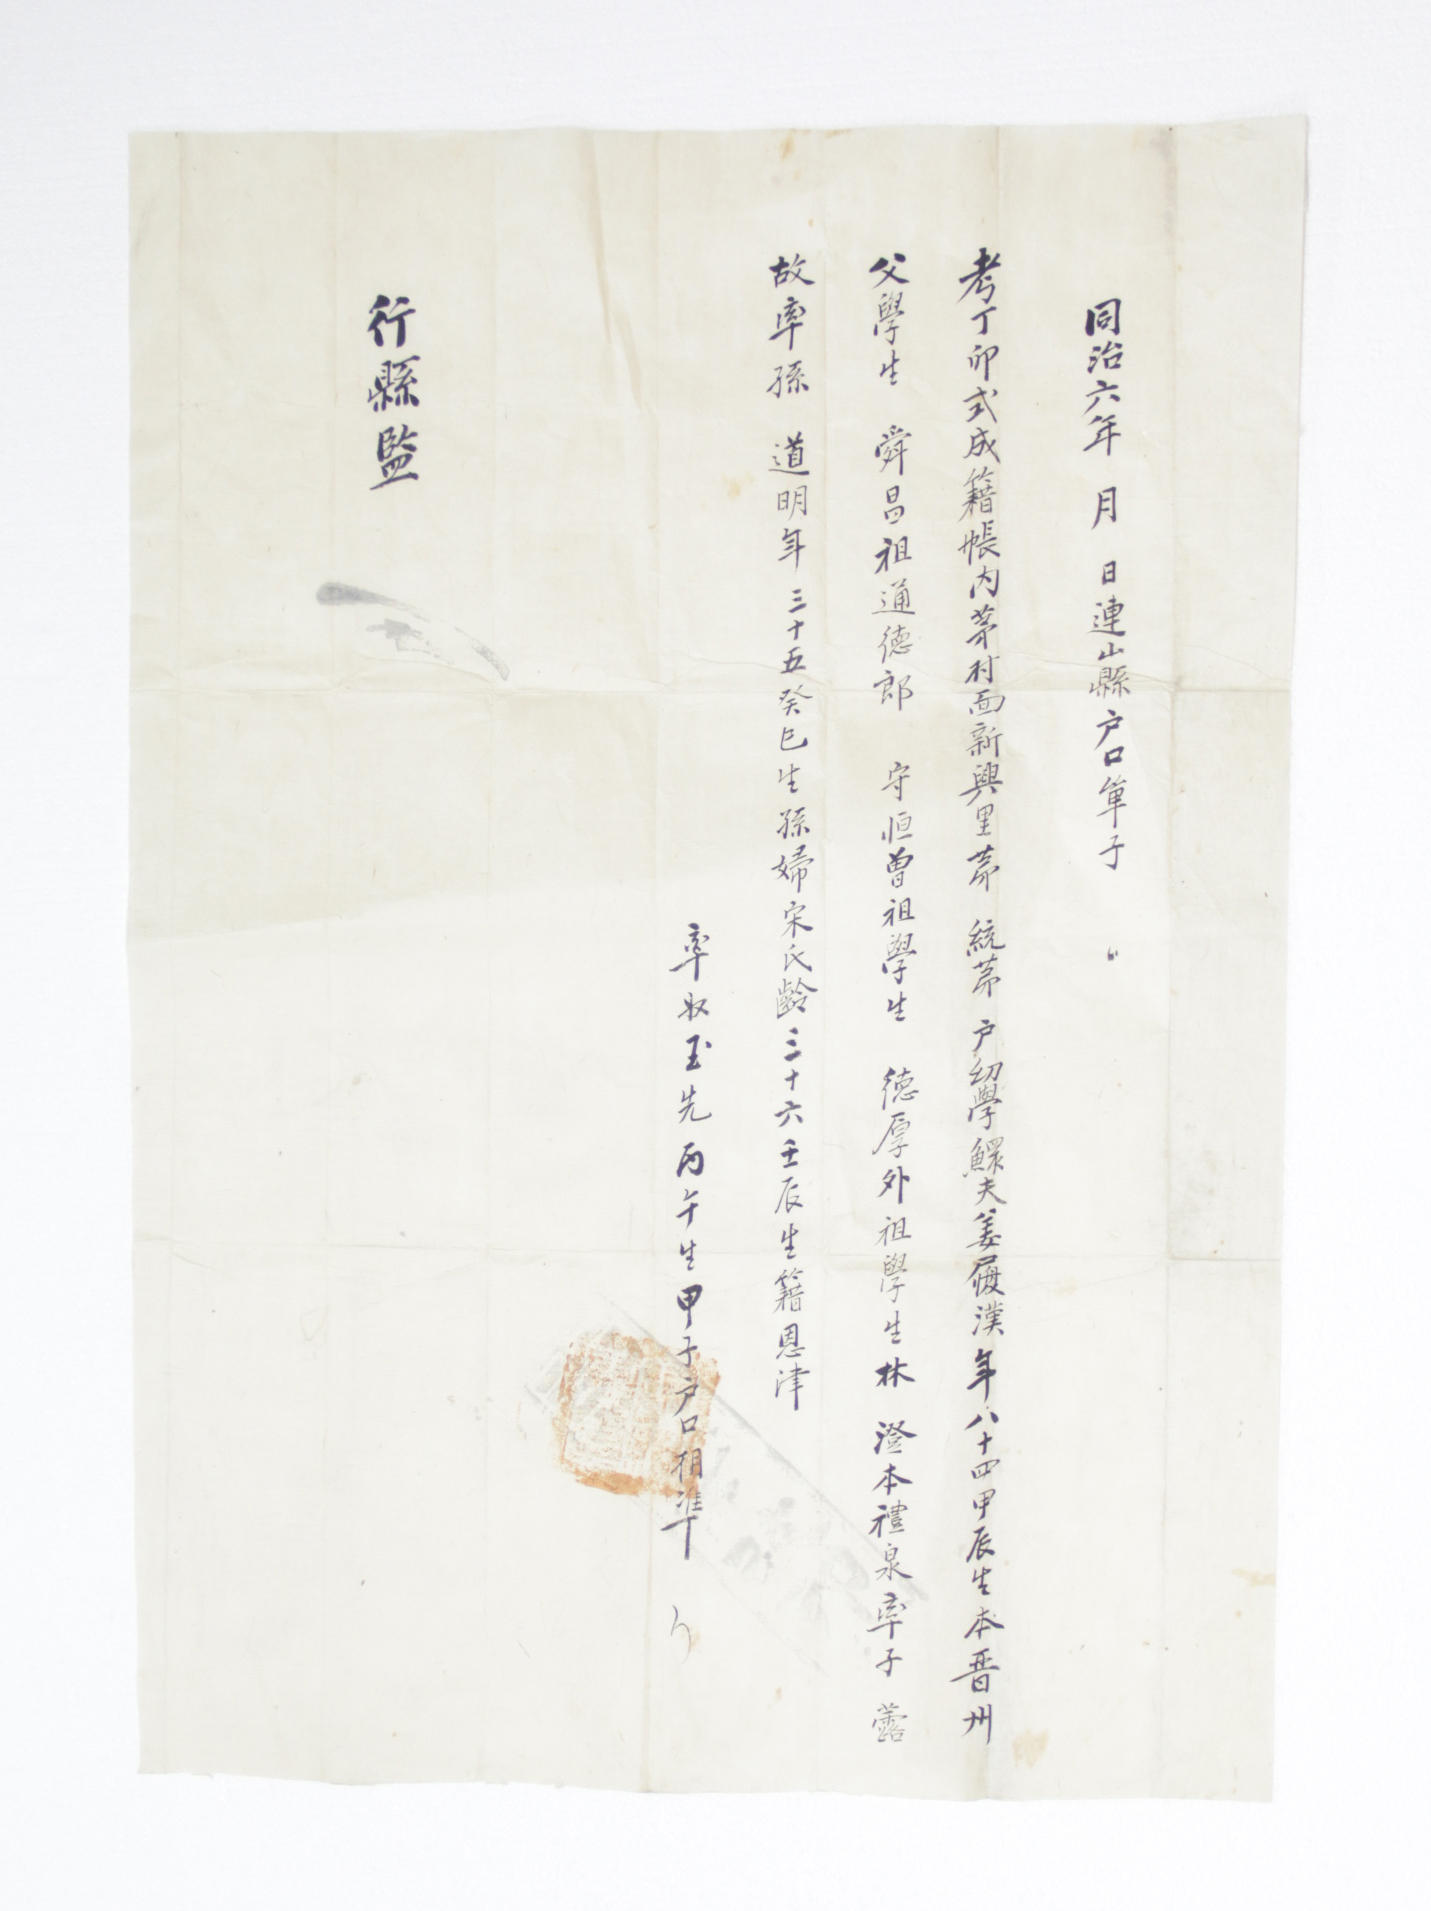 同治六年 月 日連山縣戶口單子
考丁卯式成籍帳內茅村面新興里苐 統苐 戶幼學鰥夫姜履漢年八十四甲辰生本晋州
父學生 舜昌祖通德郎 守恒曾祖學生 德厚外祖學生林 澄本禮泉率子
故率孫 道明年三十五癸巳生孫婦宋氏齡三十六壬辰生籍恩津
率奴玉先丙午生甲子戶口相準
行縣監